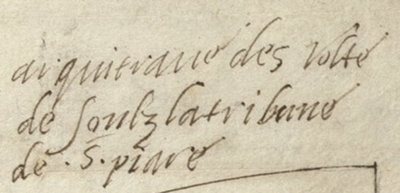 arquitraue des volte
de soulz la tribune
de . S. piare